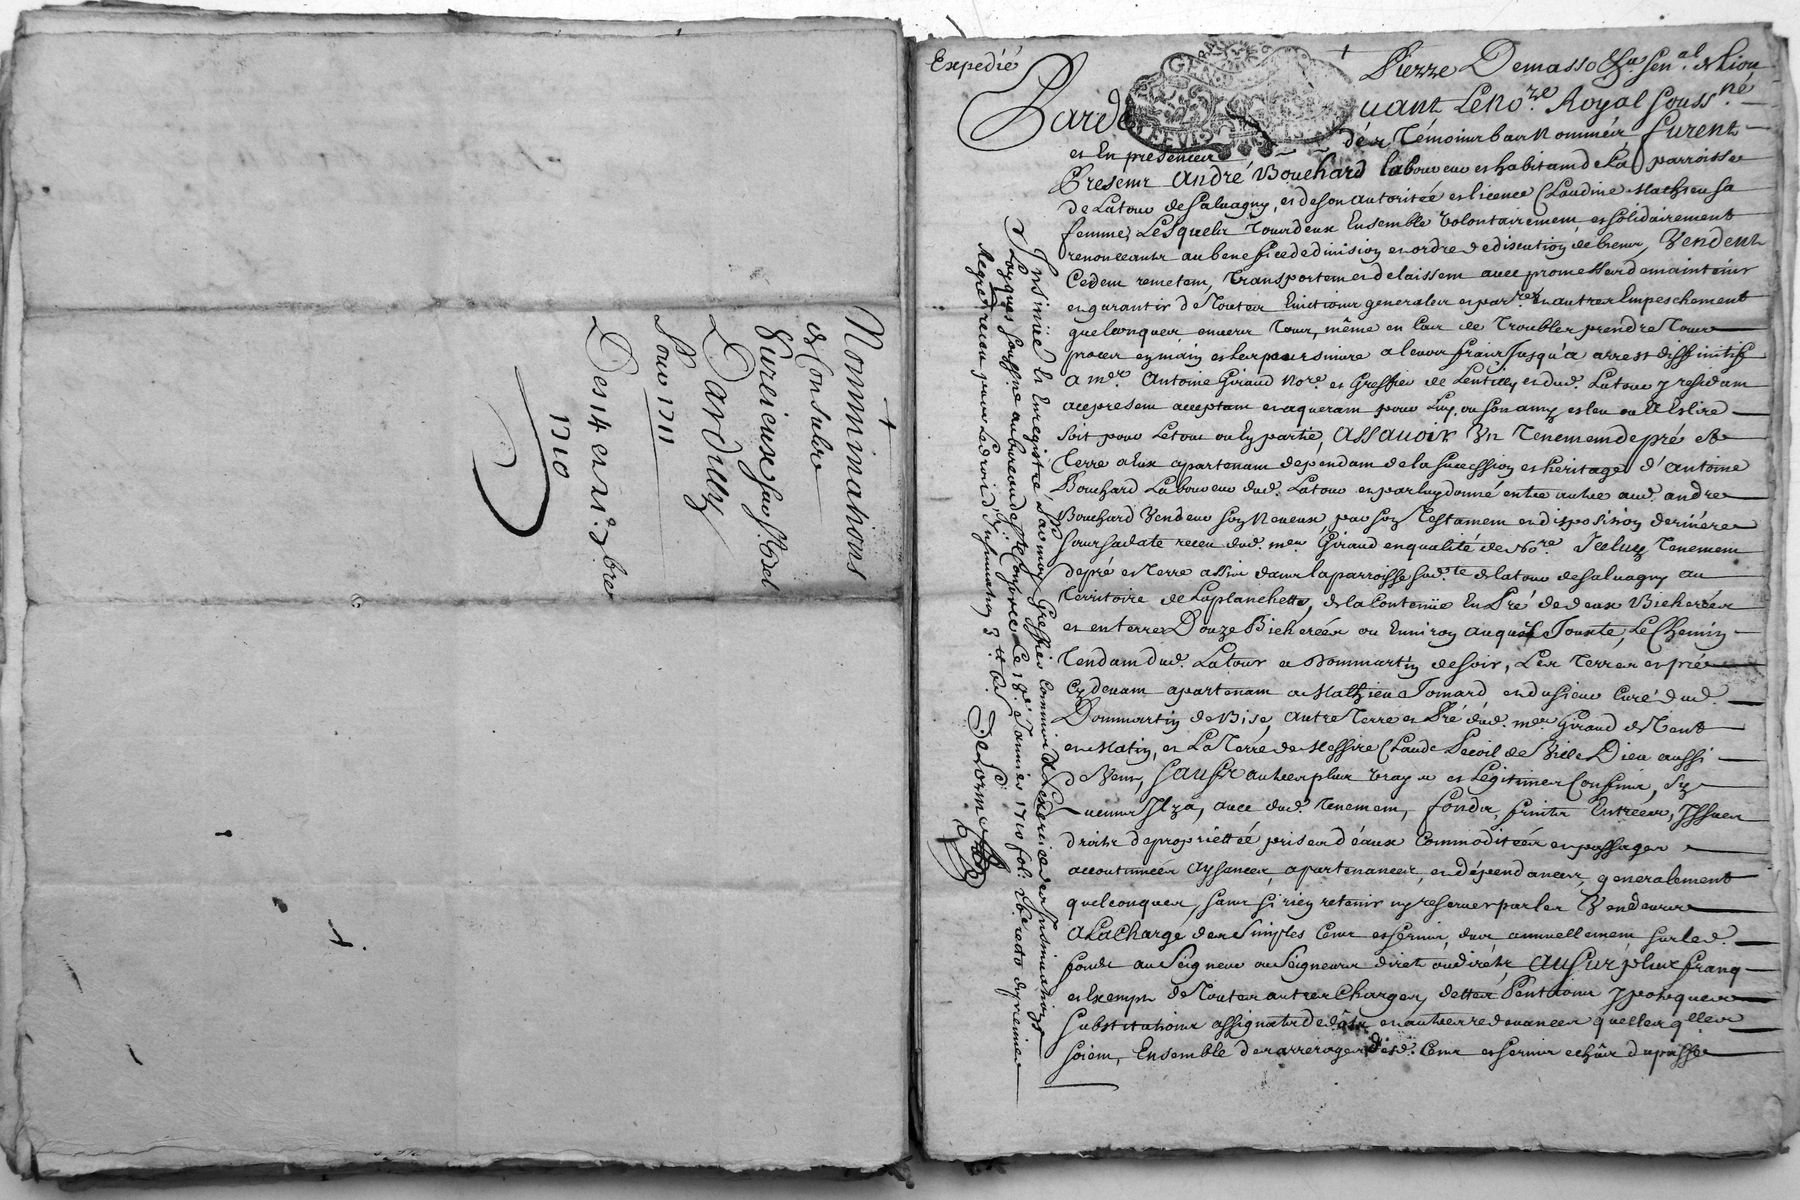 Nomminations
de Consulz
Luzieux sur St. Bel
Dardilly
Pour 1711
Des 14 et 21e. 9bre
1710
Expedié
Pierre Demasso Ser Senal. de Lion
Pardevant Le No.re Royal Souss.né
et En presence des Témoins bas Nommés furent
Presens André Bouchard laboureur et habitand de La parroisse
de Latour de Salvagny, et de son autoritée et licence Claudine Mathieu sa
femme, Lesquels Tous deux Ensemble volontairement et solidairement
renonceants au benefice de division et ordre de discution de biens, Vendent
Cedent remetent, Transportent et delaissent avec promesse de maintenir
et garantir de Toutes Evictions generales et par.res et autres Empeschement
quelconques, envers Tous, même en Cas de Trouble, prendre Tous
proces en main et les poursuivre a leurs frais Jusqu'a arrest diffinitif
a mer. Antoine Giraud Nore. et Greffier de Lentilly et dud. Latour y residant
cy present acceptant et aquerant pour Luy, ou son amy esleu ou A Eslire
soit pour Letout ou En partie, Assavoir Un Tenement de pré et
Terre a Eux apartenant dependant de la succession et heritage d'Antoine
Bouchard Laboureur dud. Latour et par luy donné entre autre aud. andre
Bouchard Vendeur son Neveux, par son Testament et disposition derniere
sous sa date receu dud. mer. Giraud en qualité de No.re Iceluy Tenement
de pré et Terre assis dans la parroisse sud.te de latour de salvagny au
Territoire de Laplanchette, de la Contenüe En Pré de deux Bicherées
et en terres Douze Bicherées ou Environ auquel Jouxte, Le Chemin
Tendant dud. Latour a Dommartin de soir, Les Terres et pré
Cy devant apartenant a Mathieu Tomard et du sieur Curé dud.
Dommartin de Bise, autre Terre et Pré dud. mer Giraud de Vent
et Matin, et La Terre de Messire Claude de Ville Dieu aussi
de Vent, sauf autres plus vrays et Legitimes Confins, sy
aucuns Ilya, avec dud. Tenement, fonds, fruits Entrées, Issues
droits de proprietté prises d'eaux Commoditées et passages
accoutumées Aysances, apartenances, et dépendances, generalement
quelconques, sans si rien retenir ny reserver par les Vendeurs
A La Charge des Simples Cens et servis, deus annuellement sur led.
fonds au Seigneur ou Seigneurs direct ou directs, Au Surplus franq
et Exempt de Toutes autres Charges, dettes Pentions ypoteques
substitutions assignats de dote et autres redevances quelles qlles
soient, Ensemble des arrerages desd. Cens et servis echûs du passé
Insinüé & Enregistré Par moy Greffier Commis A L'exercice des Insinuations
Laÿques soussigné au bureau de Le 18e. Janvier 1710 fol. 26 recto dixieme
Registre receu pour Le droit d'Insinuation 3 tt 6 s. Delorme